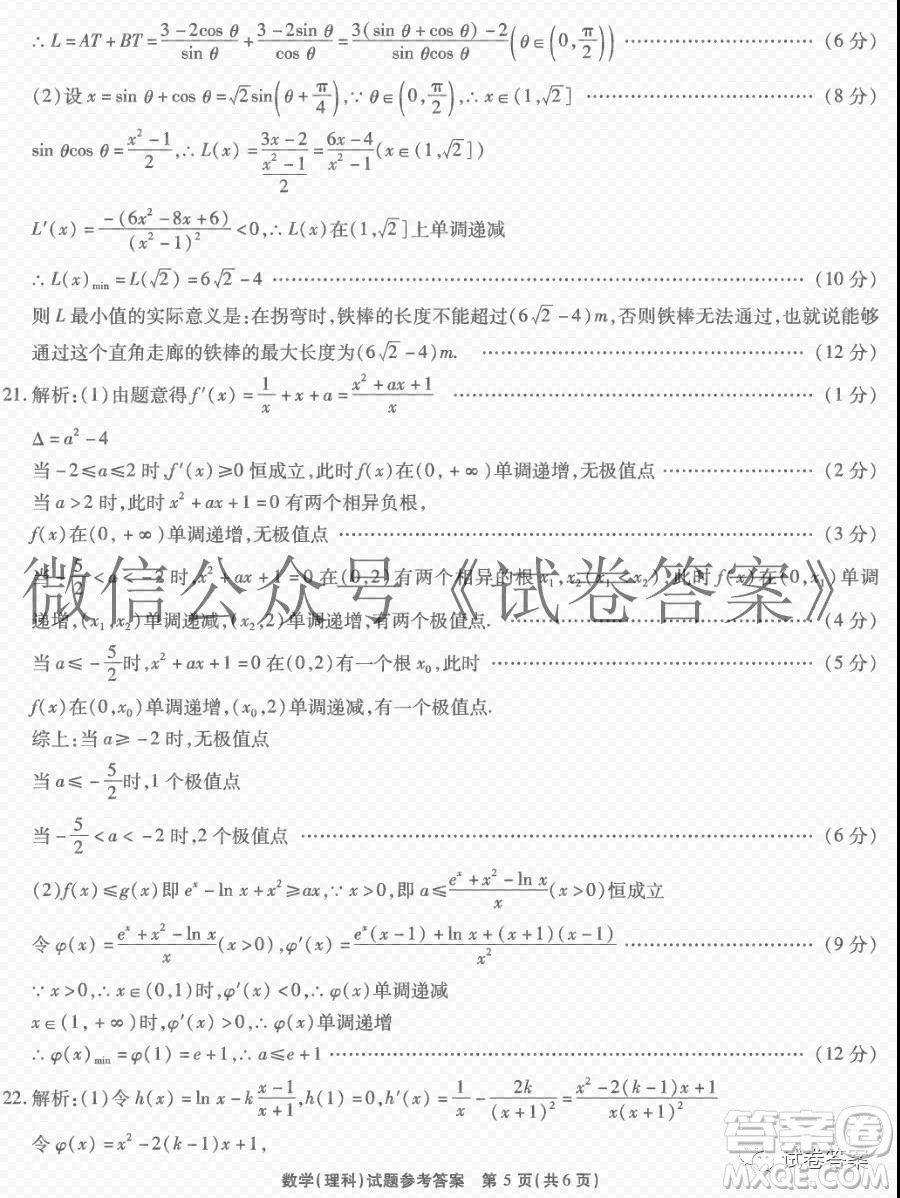 ∴ L=AT+BT=\frac{3-2cos θ}{sin θ}+\frac{3-2sin θ}{cos θ}=\frac{3(sin θ+cos θ)-2}{sin θcos θ}(θ∈(0,\frac{π}{2})) ……………………(6 分)
(2)设 x=sin θ+cos θ=√2sin(θ+\frac{π}{4}),∵ θ∈(0,\frac{π}{2}),∴ x∈(1,√2] ……………………(8 分)
sin θcos θ=\frac{x²-1}{2},∴ L(x)=\frac{3x-2}{\frac{x²-1}{2}}=\frac{6x-4}{x²-1}(x∈(1,√2])
L′(x)=\frac{-(6x²-8x+6)}{(x²-1)²}<0,∴ L(x)在(1,√2]上单调递减
∴ L(x)min=L(√2)=6√2-4 ……………………(10 分)
则 L 最小值的实际意义是:在拐弯时,铁棒的长度不能超过(6√2-4)m,否则铁棒无法通过,也就说能够
通过这个直角走廊的铁棒的最大长度为(6√2-4)m. ……………………(12 分)
21.解析:(1)由题意得f′(x)=\frac{1}{x}+x+a=\frac{x²+ax+1}{x} ……………………(1 分)
Δ=a²-4
当-2≤a≤2 时,f′(x)≥0 恒成立,此时f(x)在(0,+∞)单调递增,无极值点 ……………………(2 分)
当 a>2 时,此时 x²+ax+1=0 有两个相异负根,
f(x)在(0,+∞)单调递增,无极值点 ……………………(3 分)
当-\frac{5}{2}<a<-2 时,x²+ax+1=0 在(0,2)有两个相异的根 x₁,x₂(x₁<x₂),此时 f(x)在(0,x₁)单调
递增,(x₁,x₂)单调递减,(x₂,2)单调递增,有两个极值点. ……………………(4 分)
微信公众号《试卷答案》
当 a≤-\frac{5}{2}时,x²+ax+1=0 在(0,2)有一个根 x₀,此时 ……………………(5 分)
f(x)在(0,x₀)单调递增,(x₀,2)单调递减,有一个极值点.
综上:当 a≥-2 时,无极值点
当 a≤-\frac{5}{2}时,1 个极值点
当-\frac{5}{2}<a<-2 时,2 个极值点 ……………………(6 分)
(2)f(x)≤g(x)即 eˣ-ln x+x²≥ax,∵ x>0,即 a≤\frac{eˣ+x²-ln x}{x}(x>0)恒成立
令 φ(x)=\frac{eˣ+x²-ln x}{x}(x>0),φ′(x)=\frac{eˣ(x-1)+ln x+(x+1)(x-1)}{x²} ……………………(9 分)
∵ x>0,∴ x∈(0,1)时,φ′(x)<0,∴ φ(x)单调递减
x∈(1,+∞)时,φ′(x)>0,∴ φ(x)单调递增
∴ φ(x)min=φ(1)=e+1,∴ a≤e+1 ……………………(12 分)
22.解析:(1)令 h(x)=ln x-k\frac{x-1}{x+1},h(1)=0,h′(x)=\frac{1}{x}-\frac{2k}{(x+1)²}=\frac{x²-2(k-1)x+1}{x(x+1)²}
令 φ(x)=x²-2(k-1)x+1,
答案圈
试卷答案
MXQE.COM
数学(理科)试题参考答案 第 5 页(共 6 页)